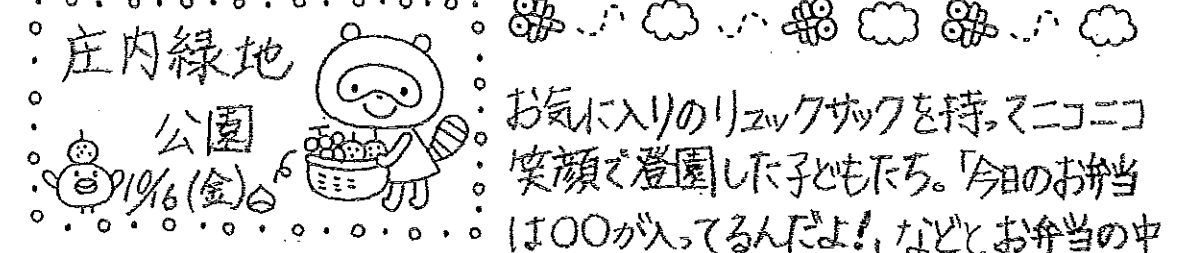 庄内緑地
公園
10/16(金)
お気に入りのリュックサックを持ってニコニコ
笑顔で登園した子どもたち。「今日のお弁当
は〇〇が入ってるんだよ!」などとお弁当の中